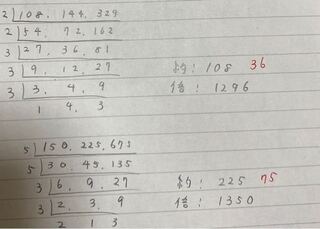 2 108. 144. 324
2 54. 72. 162
3 27. 36. 81
3 9. 12. 27
3 3. 4. 9
1 4. 3
約:108 36
倍:1296
5 150. 225. 675
5 30. 45. 135
3 6. 9. 27
3 2. 3. 9
2 1 3
約:225 75
倍:1350